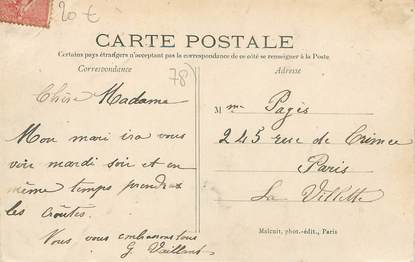 20 €
CARTE POSTALE
Certains pays étrangers n'acceptant pas la correspondance de ce côté se renseigner à la Poste
Correspondance
78)
Adresse
Chère Madame
Mon mari ira vous
voir mardi soir et en
même temps prendra
les croûtes.
Vous vous embrassons tous
G. Vaillant
Mme Pagès
245 rue de Crimée
Paris
La Villette
Malcuit, phot.-édit., Paris